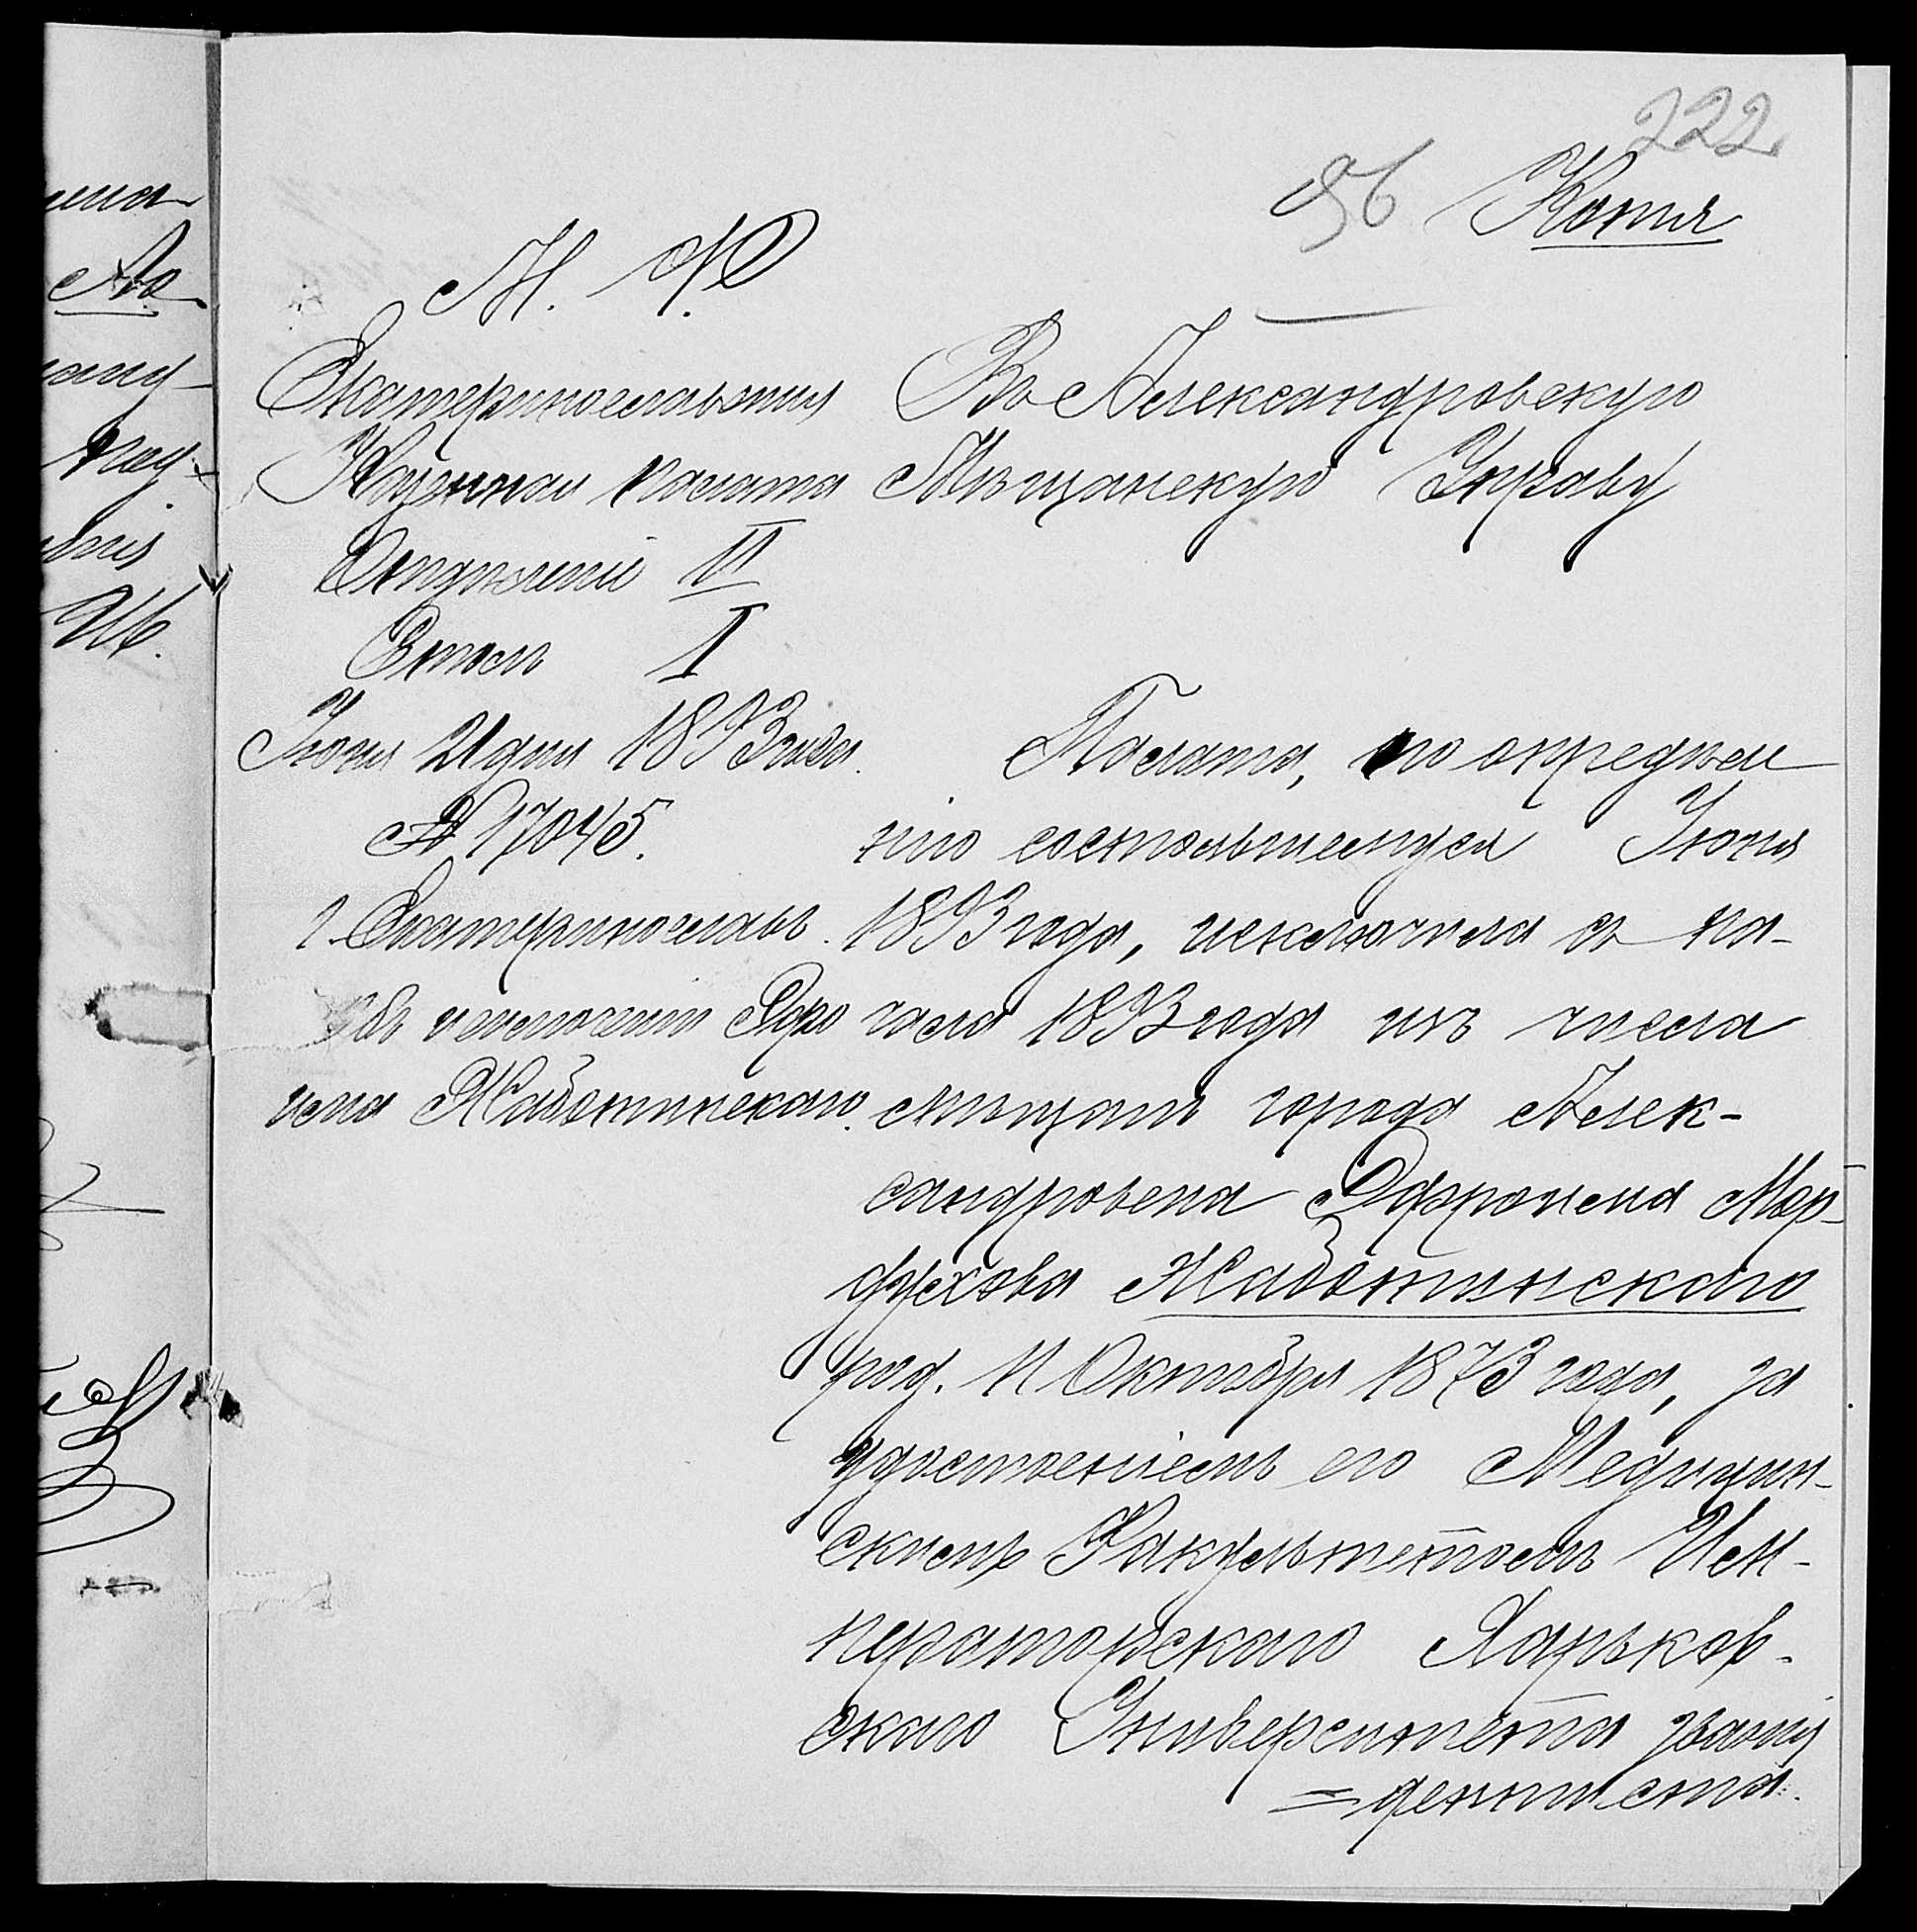 222
96 Копія
М. Ф.
Екатеринославская
Казенная Палата
Отделеніе II
Столъ I
Іюня 21 дня 1893 года.
№ 17045.
г. Екатеринославъ.
Объ исключеніи Эфро
има Жаботинскаго.
Въ Александровскую
Мѣщанскую Управу
Палата, по опредѣле
нію состоявшемуся Іюня
1893 года, исключила съ на-
чала 1893 года изъ числа
мѣщанъ города Алек-
сандровска Мор-
духова Жаботинскаго
род. 11 Октября 1873 года, за
удостоеніемъ его Медицин-
скимъ Факультетомъ Им-
ператорскаго Харьков-
скаго Университета званія
= дентиста.